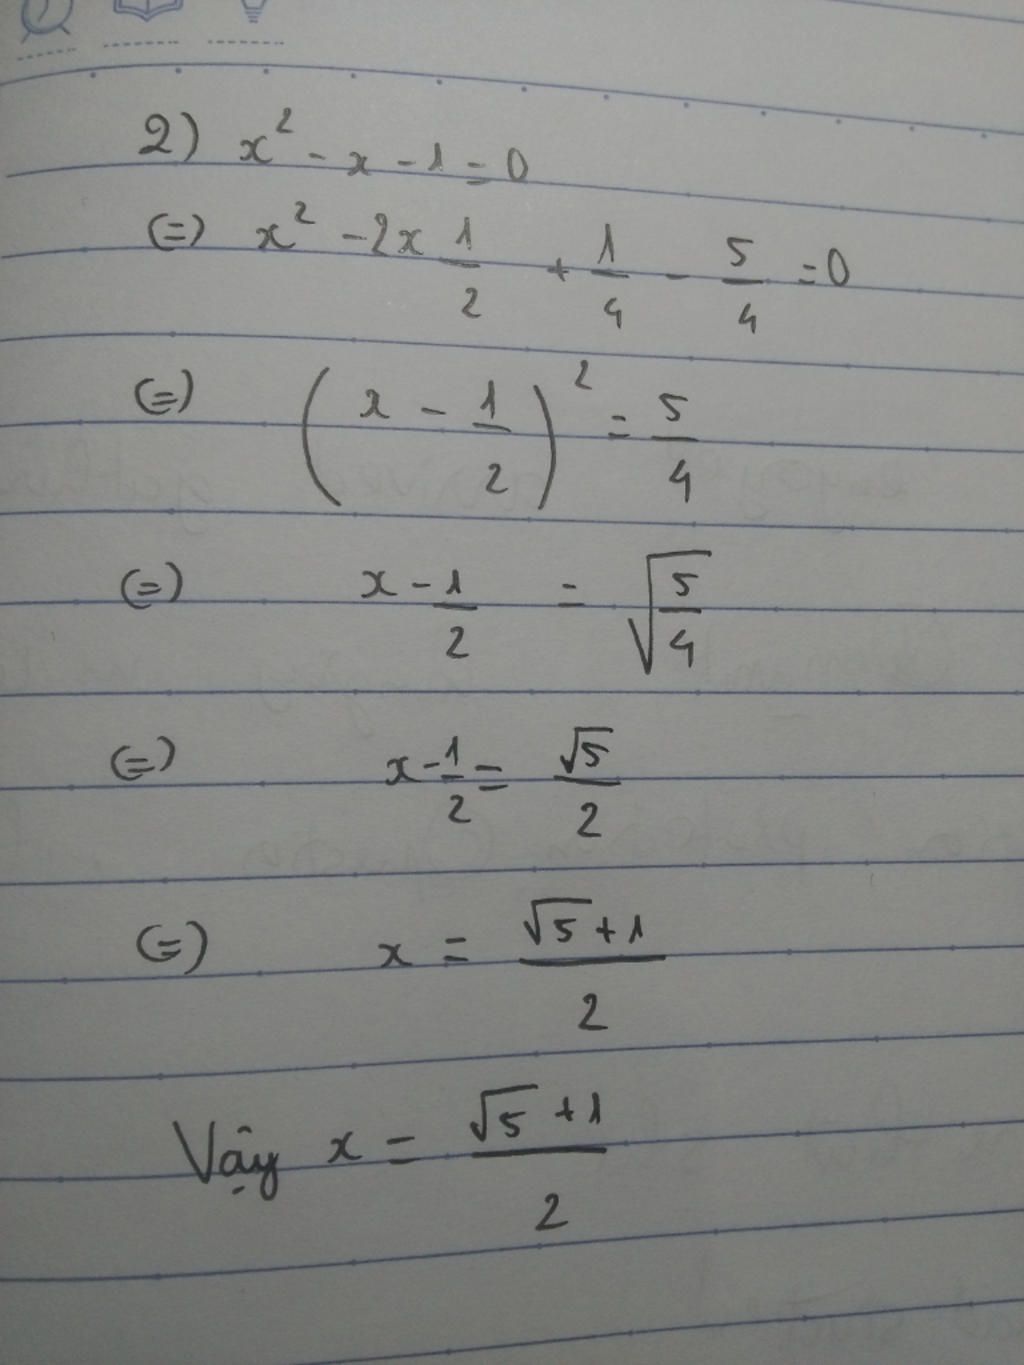 2) x² - x - 1 = 0
(=) x² - 2x 1/2 + 1/4 - 5/4 = 0
(=) (x - 1/2)² = 5/4
(=) x - 1/2 = √(5/4)
(=) x - 1/2 = √5/2
(=) x = (√5 + 1)/2
Vậy x = (√5 + 1)/2